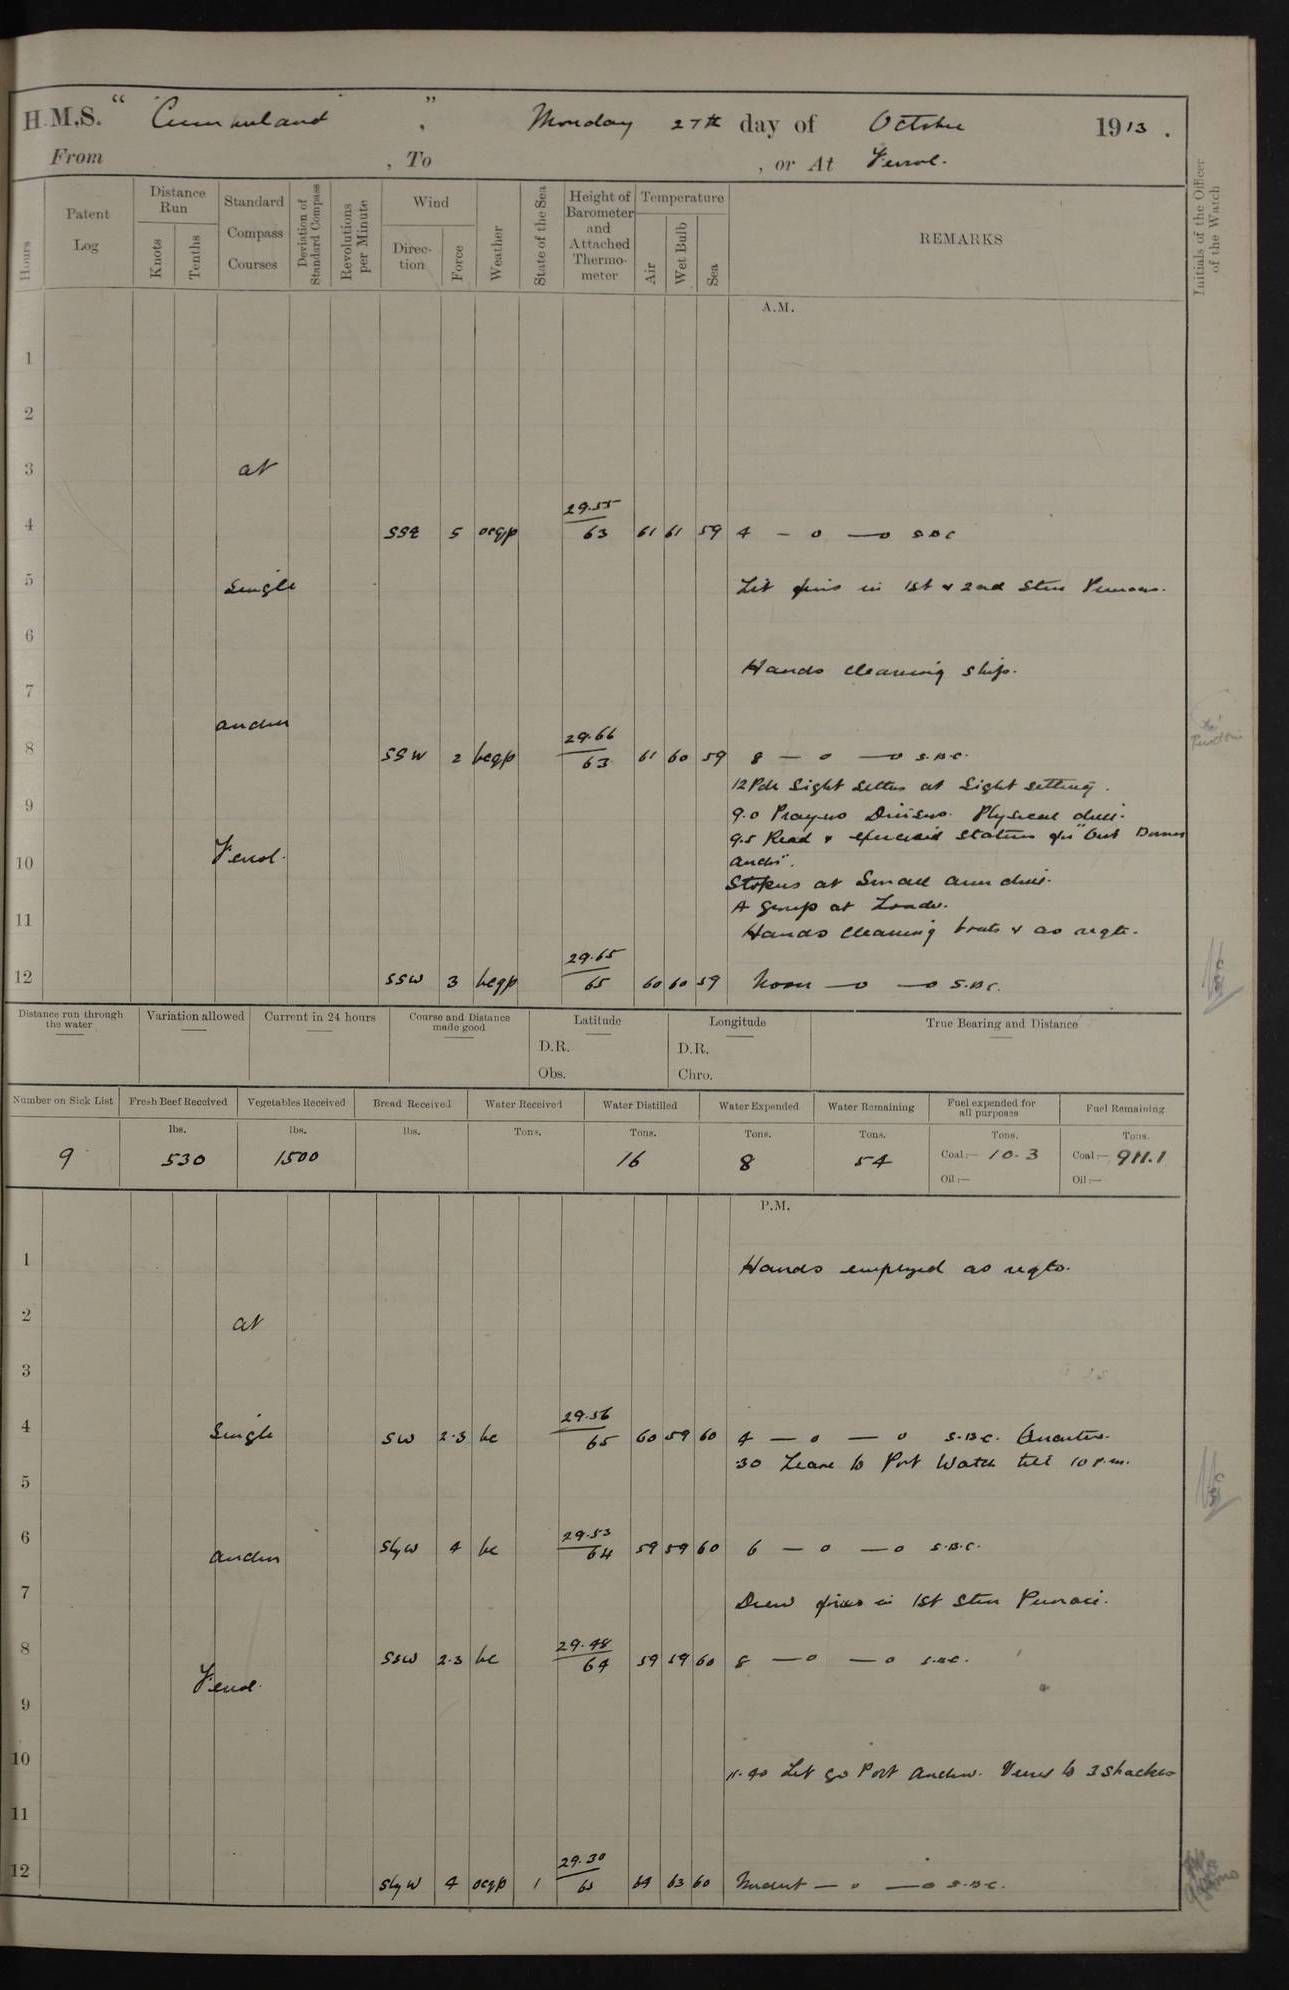 H.M.S. " Cumberland " , Monday 27th day of October 1913 .
From , To , or At Ferrol.
Hours
Patent Log
Distance Run
Knots
Tenths
Standard Compass Courses
Deviation of Standard Compass
Revolutions per Minute
Wind
Direction
Force
Weather
State of the Sea
Height of Barometer and Attached Thermometer
Temperature
Air
Wet Bulb
Sea
REMARKS
Initials of the Officer of the Watch
A.M.
1
2
3 at
4 SSE 5 ocqp 29.55 63 61 61 59 4 — o — o S.B.C
5 Single Lit fires in 1st & 2nd Stm Pinnaces.
6
Hands cleaning ship.
7
anchor
8 SSW 2 bcqp 29.66 63 61 60 59 8 — o — o S.B.C.
12 Pdr Sight setters at Sight setting.
9 9.0 Prayers Divisions. Physical drill.
9.5 Read & exercised Stations for "Out Bower
10 Ferrol. anchor".
Stokers at Small arm drill.
A Group at Loader.
11 Hands cleaning boats & as reqte.
12 SSW 3 bcqp 29.65 65 60 60 59 Noon — o — o S.B.C.
Distance run through the water
Variation allowed
Current in 24 hours
Course and Distance made good
Latitude
D.R.
Obs.
Longitude
D.R.
Chro.
True Bearing and Distance
Number on Sick List 9
Fresh Beef Received lbs. 530
Vegetables Received lbs. 1500
Bread Received lbs.
Water Received Tons.
Water Distilled Tons. 16
Water Expended Tons. 8
Water Remaining Tons. 54
Fuel expended for all purposes Tons. Coal:— 10.3 Oil:—
Fuel Remaining Tons. Coal:— 911.1 Oil:—
P.M.
1 Hands employed as reqts.
2 at
3
4 Single SW 2.3 bc 29.56 65 60 59 60 4 — o — o S.B.C. Quarters.
.30 Leave to Port Watch till 10 p.m.
5
6 anchor SbyW 4 bc 29.53 64 59 59 60 6 — o — o S.B.C.
7 Drew fires in 1st Stm Pinnace.
8 SSW 2.3 bc 29.48 64 59 59 60 8 — o — o S.B.C.
Ferrol.
9
10 11.40 Let go Port anchor. Veered to 3 shackles
11
12 SbyW 4 ocqp 1 29.30 65 64 63 60 Midnt — o — o S.B.C.